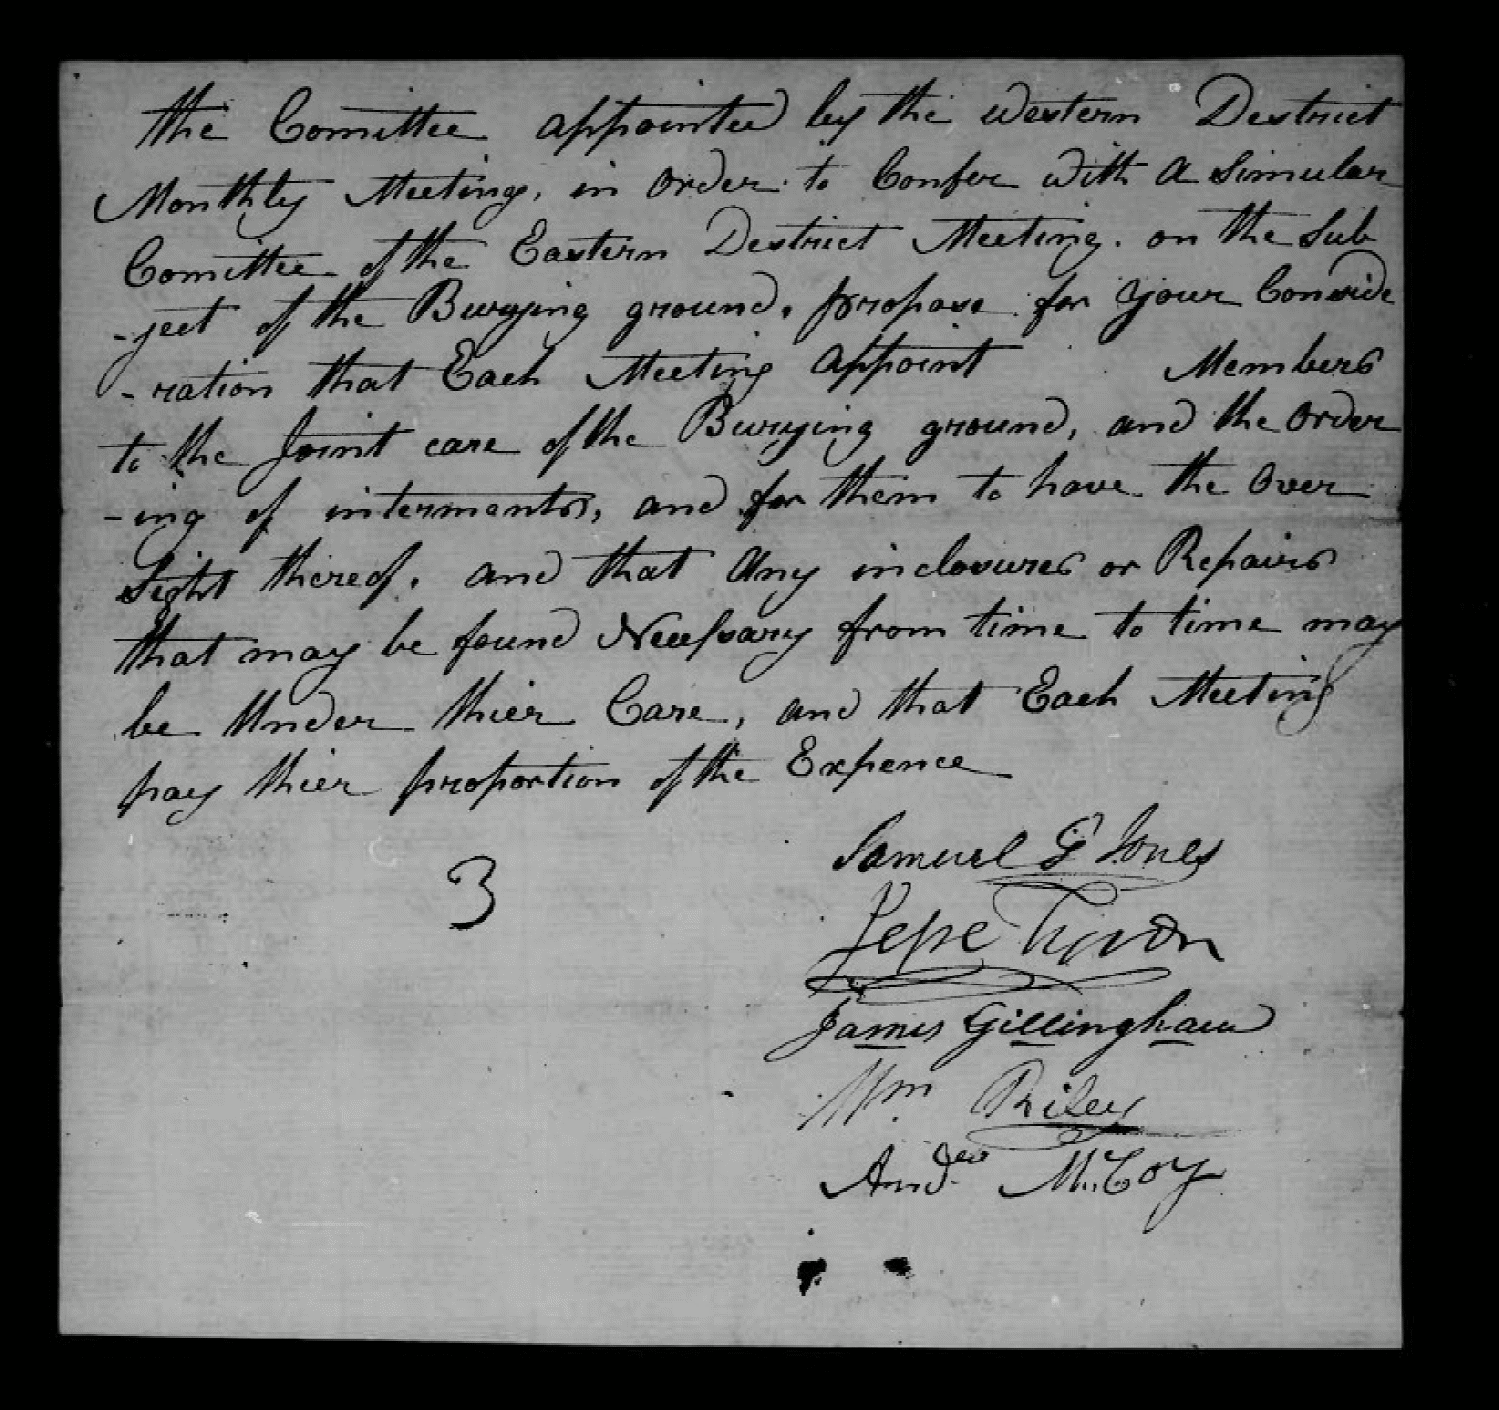 the Comittee appointed by the Western District
Monthly Meeting, in order to Confer with a Simular
Comittee of the Eastern District Meeting. on the Sub
-ject of the Burying ground, propose for your Conside
-ration that Each Meeting appoint Members
to the Joint care of the Burying ground, and the order
-ing of interments, and for them to have the over
Sight thereof, and that any inclosures or Repairs
that may be found Necessary from time to time may
be Under thier Care, and that Each Meeting
pay thier proportion of the Expence
Samuel G Jones
3
Jesse Tyson
James Gillingham
Wm Riley
Andew McCoy